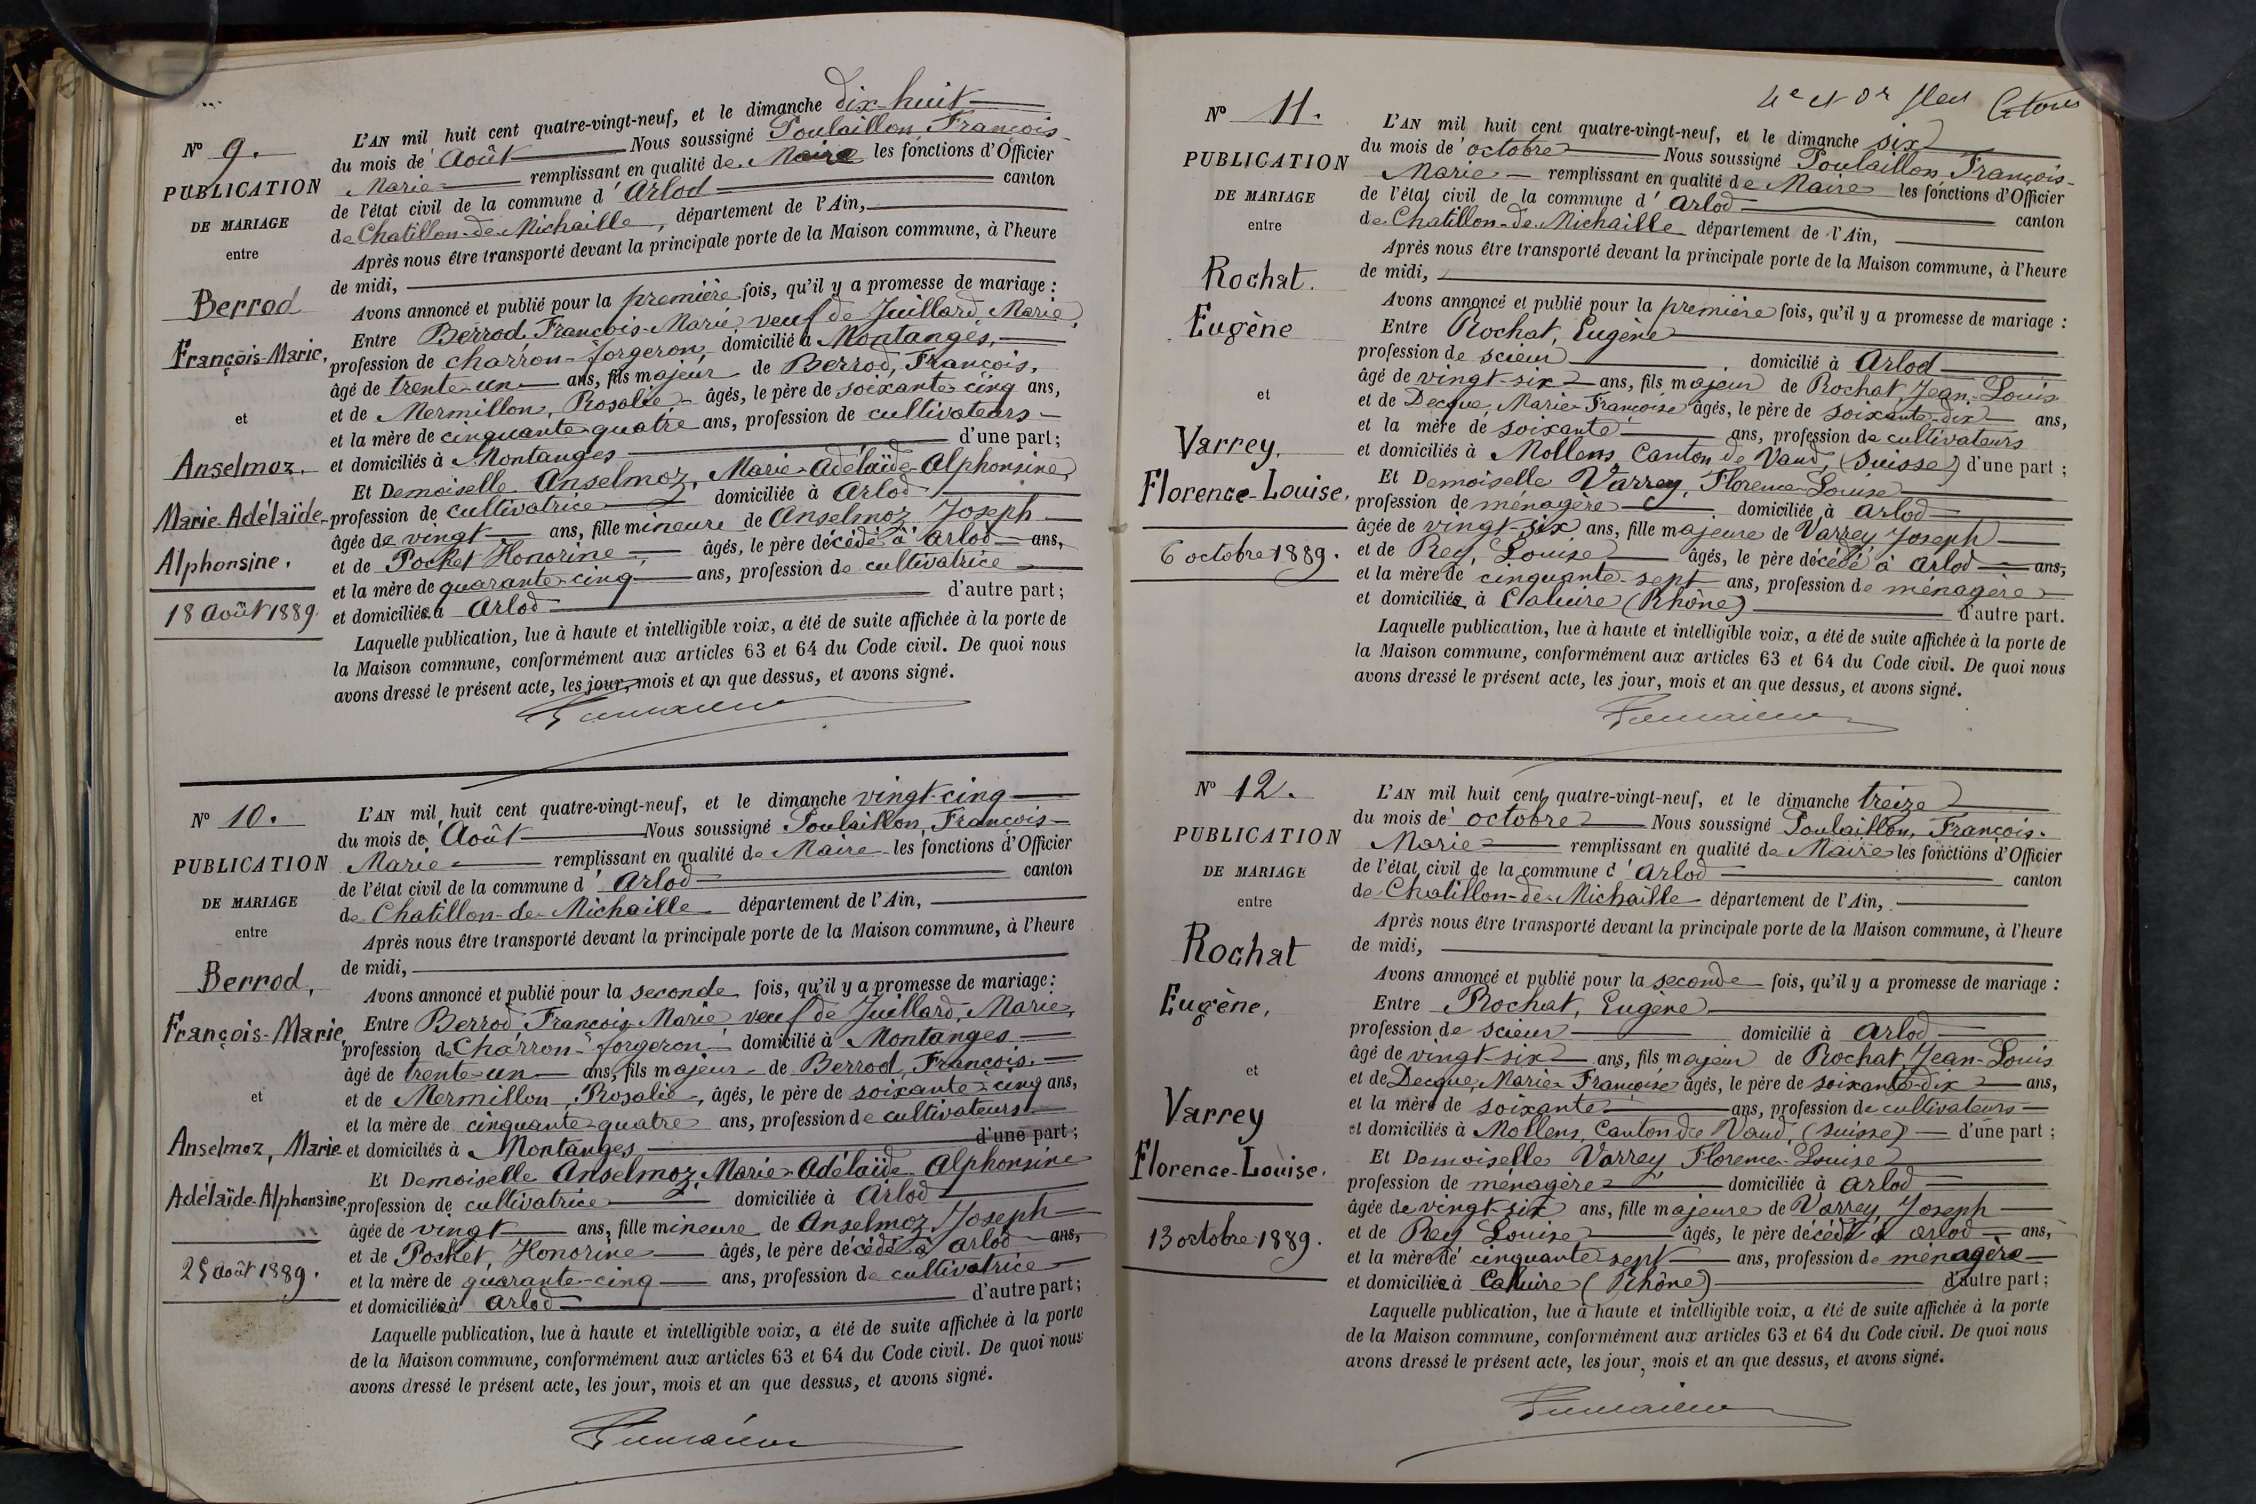 Nº 9.
PUBLICATION
DE MARIAGE
entre
Berrod
François-Marie,
et
Anselmoz.
Marie-Adélaïde-
Alphonsine.
18 Août 1889.
L'AN mil huit cent quatre-vingt-neuf, et le dimanche dix-huit
du mois de Août Nous soussigné Poulaillon, François-
Marie remplissant en qualité de Maire les fonctions d'Officier
de l'état civil de la commune d'Arlod canton
de Chatillon-de-Michaille, département de l'Ain,
Après nous être transporté devant la principale porte de la Maison commune, à l'heure
de midi,
Avons annoncé et publié pour la première fois, qu'il y a promesse de mariage :
Entre Berrod, François-Marie, veuf de Juillard, Marie,
profession de charron-forgeron, domicilié à Montanges,
âgé de trente-un ans, fils majeur de Berrod, François,
et de Mermillon, Rosalie, âgés, le père de soixante-cinq ans,
et la mère de cinquante-quatre ans, profession de cultivateurs
et domiciliés à Montanges d'une part ;
Et Demoiselle Anselmoz, Marie-Adélaïde-Alphonsine
profession de cultivatrice domiciliée à Arlod
âgée de vingt ans, fille mineure de Anselmoz Joseph
et de Pochet Honorine, âgés, le père décédé à Arlod ans,
et la mère de quarante-cinq ans, profession de cultivatrice
et domiciliée à Arlod d'autre part ;
Laquelle publication, lue à haute et intelligible voix, a été de suite affichée à la porte de
la Maison commune, conformément aux articles 63 et 64 du Code civil. De quoi nous
avons dressé le présent acte, les jour, mois et an que dessus, et avons signé.
Nº 10.
PUBLICATION
DE MARIAGE
entre
Berrod,
François-Marie
et
Anselmoz, Marie
Adélaïde-Alphonsine,
25 Août 1889.
L'AN mil huit cent quatre-vingt-neuf, et le dimanche vingt-cinq
du mois de Août Nous soussigné Poulaillon, François-
Marie remplissant en qualité de Maire les fonctions d'Officier
de l'état civil de la commune d'Arlod canton
de Chatillon-de-Michaille département de l'Ain,
Après nous être transporté devant la principale porte de la Maison commune, à l'heure
de midi,
Avons annoncé et publié pour la seconde fois, qu'il y a promesse de mariage :
Entre Berrod François Marie veuf de Juillard, Marie,
profession de Charron-forgeron domicilié à Montanges
âgé de trente-un ans, fils majeur de Berrod, François,
et de Mermillon, Rosalie, âgés, le père de soixante-cinq ans,
et la mère de cinquante-quatre ans, profession de cultivateurs
et domiciliés à Montanges d'une part ;
Et Demoiselle Anselmoz, Marie-Adélaïde Alphonsine
profession de cultivatrice domiciliée à Arlod
âgée de vingt ans, fille mineure de Anselmoz Joseph
et de Pochet, Honorine âgés, le père décédé à Arlod ans,
et la mère de quarante-cinq ans, profession de cultivatrice
et domiciliée à Arlod d'autre part ;
Laquelle publication, lue à haute et intelligible voix, a été de suite affichée à la porte
de la Maison commune, conformément aux articles 63 et 64 du Code civil. De quoi nous
avons dressé le présent acte, les jour, mois et an que dessus, et avons signé.
4e et
Nº 11.
PUBLICATION
DE MARIAGE
entre
Rochat.
Eugène
et
Varrey,
Florence-Louise.
6 octobre 1889.
L'AN mil huit cent quatre-vingt-neuf, et le dimanche six
du mois de octobre Nous soussigné Poulaillon, François-
Marie remplissant en qualité de Maire les fonctions d'Officier
de l'état civil de la commune d'Arlod canton
de Chatillon-de-Michaille département de l'Ain,
Après nous être transporté devant la principale porte de la Maison commune, à l'heure
de midi,
Avons annoncé et publié pour la première fois, qu'il y a promesse de mariage :
Entre Rochat, Eugène
profession de scieur domicilié à Arlod
âgé de vingt-six ans, fils majeur de Rochat, Jean-Louis
et de Decque, Marie-Françoise âgés, le père de soixante-dix ans,
et la mère de soixante ans, profession de cultivateurs
et domiciliés à Mollens, Canton de Vaud, (Suisse) d'une part ;
Et Demoiselle Varrey, Florence-Louise
profession de ménagère domiciliée à Arlod
âgée de vingt-six ans, fille majeure de Varrey Joseph
et de Rey, Louise âgés, le père décédé à Arlod ans,
et la mère de cinquante-sept ans, profession de ménagère
et domiciliée à Caluire (Rhône) d'autre part.
Laquelle publication, lue à haute et intelligible voix, a été de suite affichée à la porte de
la Maison commune, conformément aux articles 63 et 64 du Code civil. De quoi nous
avons dressé le présent acte, les jour, mois et an que dessus, et avons signé.
Nº 12.
PUBLICATION
DE MARIAGE
entre
Rochat
Eugène,
et
Varrey
Florence-Louise.
13 octobre 1889.
L'AN mil huit cent quatre-vingt-neuf, et le dimanche treize
du mois de octobre Nous soussigné Poulaillon, François-
Marie remplissant en qualité de Maire les fonctions d'Officier
de l'état civil de la commune d'Arlod canton
de Chatillon-de-Michaille département de l'Ain,
Après nous être transporté devant la principale porte de la Maison commune, à l'heure
de midi,
Avons annoncé et publié pour la seconde fois, qu'il y a promesse de mariage :
Entre Rochat, Eugène
profession de scieur domicilié à Arlod
âgé de vingt-six ans, fils majeur de Rochat, Jean-Louis
et de Decque, Marie-Françoise âgés, le père de soixante-dix ans,
et la mère de soixante ans, profession de cultivateurs
et domiciliés à Mollens, Canton de Vaud, (Suisse) d'une part ;
Et Demoiselle Varrey Florence-Louise
profession de ménagère domiciliée à Arlod
âgée de vingt-six ans, fille majeure de Varrey Joseph
et de Rey Louise âgés, le père décédé à Arlod ans,
et la mère de cinquante sept ans, profession de ménagère
et domiciliée à Caluire (Rhône) d'autre part ;
Laquelle publication, lue à haute et intelligible voix, a été de suite affichée à la porte
de la Maison commune, conformément aux articles 63 et 64 du Code civil. De quoi nous
avons dressé le présent acte, les jour, mois et an que dessus, et avons signé.